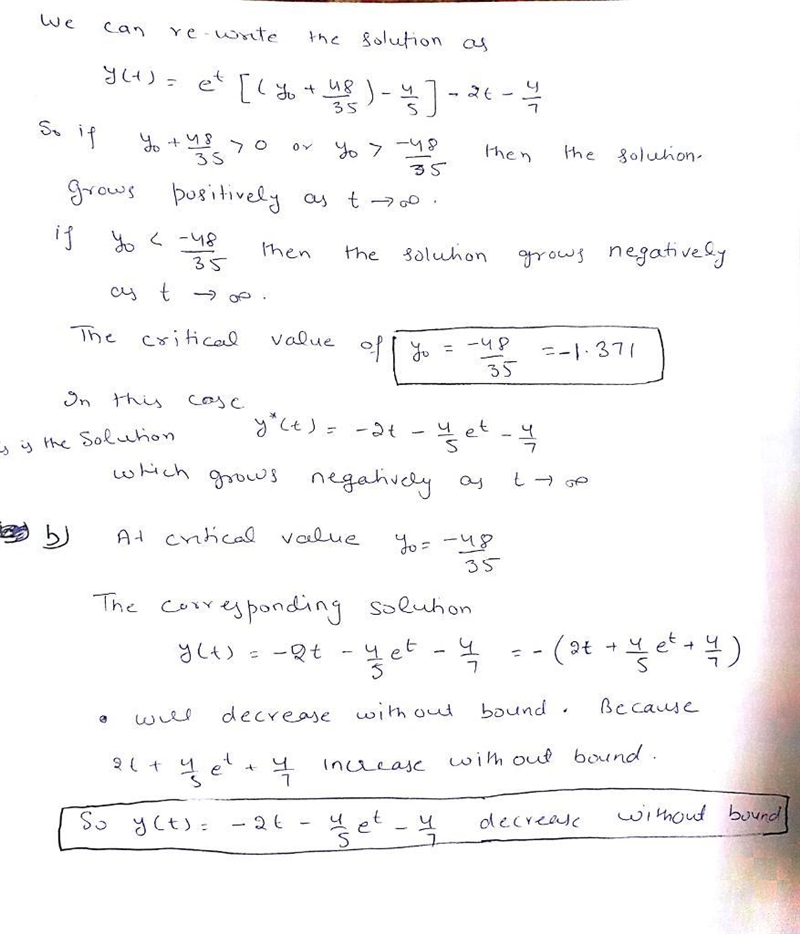 We can re-write the solution as
y(t) = e^t [(y₀ + 48/35) - 4/5] - 2t - 4/7
So if y₀ + 48/35 > 0 or y₀ > -48/35 then the solution
grows positively as t → ∞.
if y₀ < -48/35 then the solution grows negatively
as t → ∞.
The critical value of y₀ = -48/35 = -1.371
In this case
y*(t) = -2t - 4/5 e^t - 4/7
is the Solution
which grows negatively as t → ∞
b) At critical value y₀ = -48/35
The corresponding solution
y(t) = -2t - 4/5 e^t - 4/7 = -(2t + 4/5 e^t + 4/7)
• will decrease without bound. Because
2t + 4/5 e^t + 4/7 increase without bound.
So y(t) = -2t - 4/5 e^t - 4/7 decrease without bound